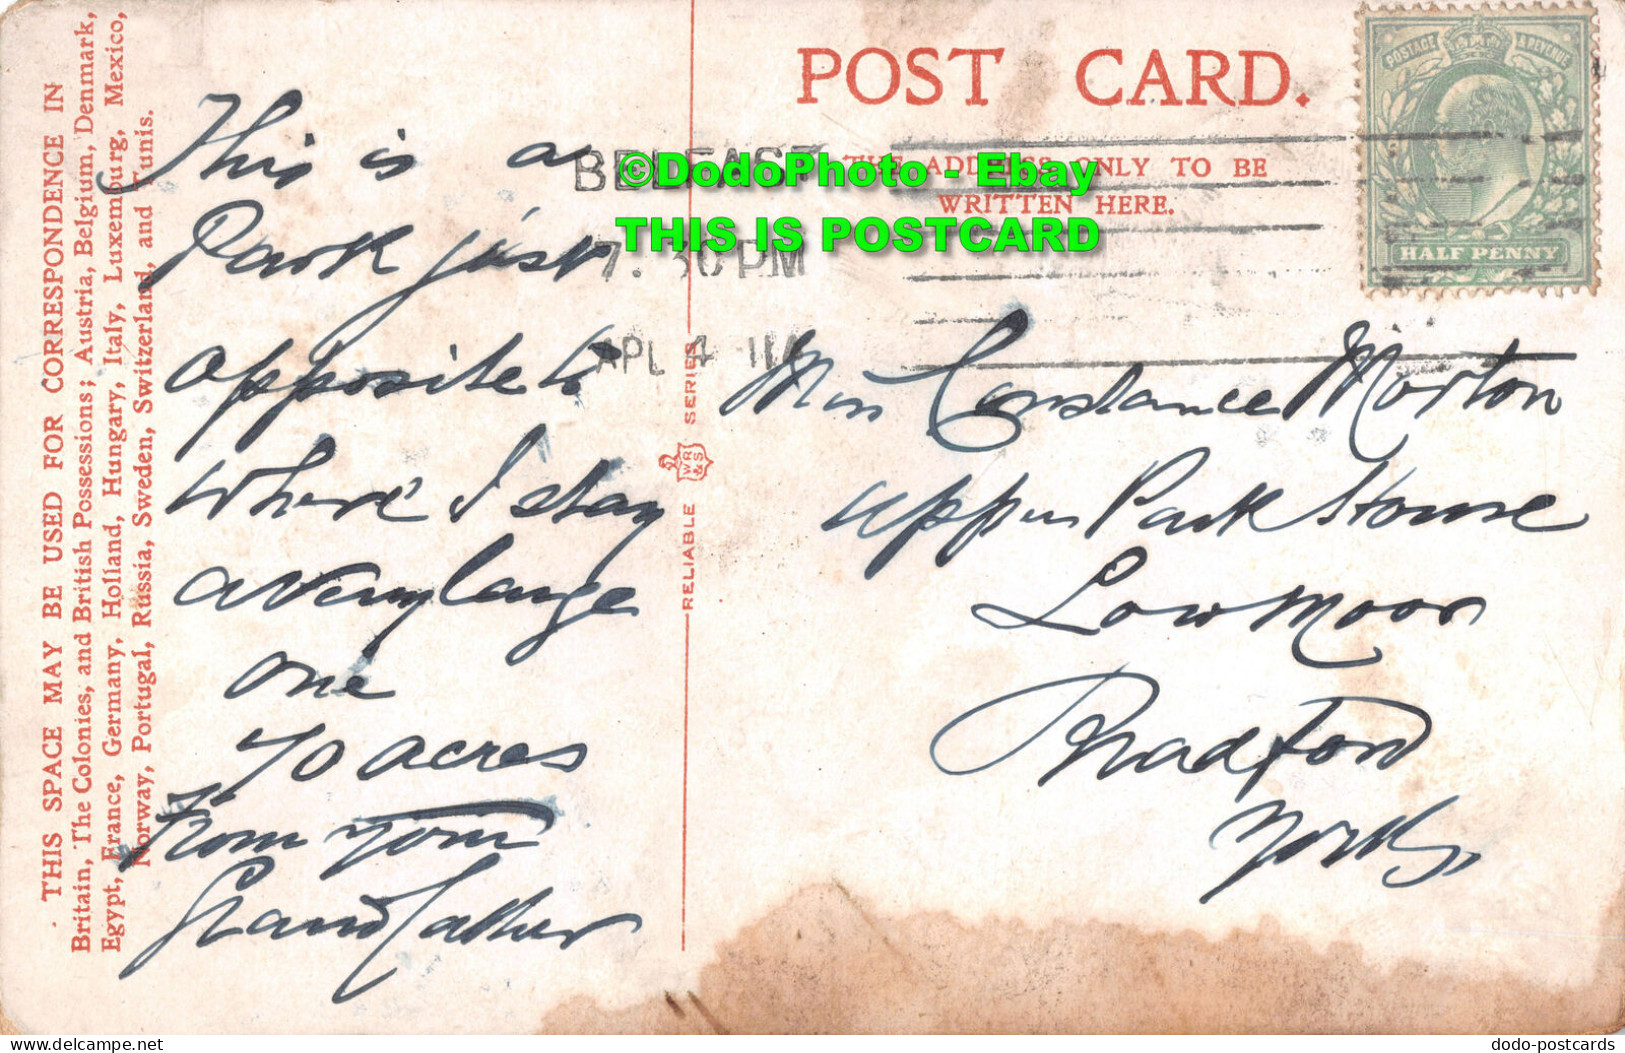 THIS SPACE MAY BE USED FOR CORRESPONDENCE IN
Britain, The Colonies, and British Possessions; Austria, Belgium, Denmark,
Egypt, France, Germany, Holland, Hungary, Italy, Luxembourg, Mexico,
Norway, Portugal, Russia, Sweden, Switzerland, and Tunis.
This is a
Park just
opposite to
where I stay
a very large
one
70 acres
From your
Grandfather
RELIABLE WR&S SERIES
POST CARD.
THE ADDRESS ONLY TO BE
WRITTEN HERE.
BELFAST
7.30 PM
APL 4 11
©DodoPhoto - Ebay
THIS IS POSTCARD
POSTAGE & REVENUE
HALF PENNY
Miss Constance Morton
Upper Park House
Low Moor
Bradford
Yorks
dodo-postcards